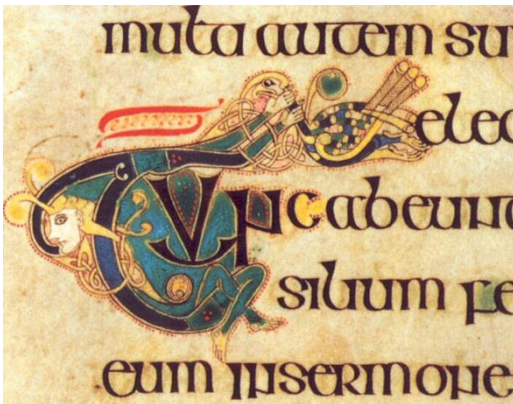 multi autem su
elec
Tunc abeun
silium fe
eum insermone